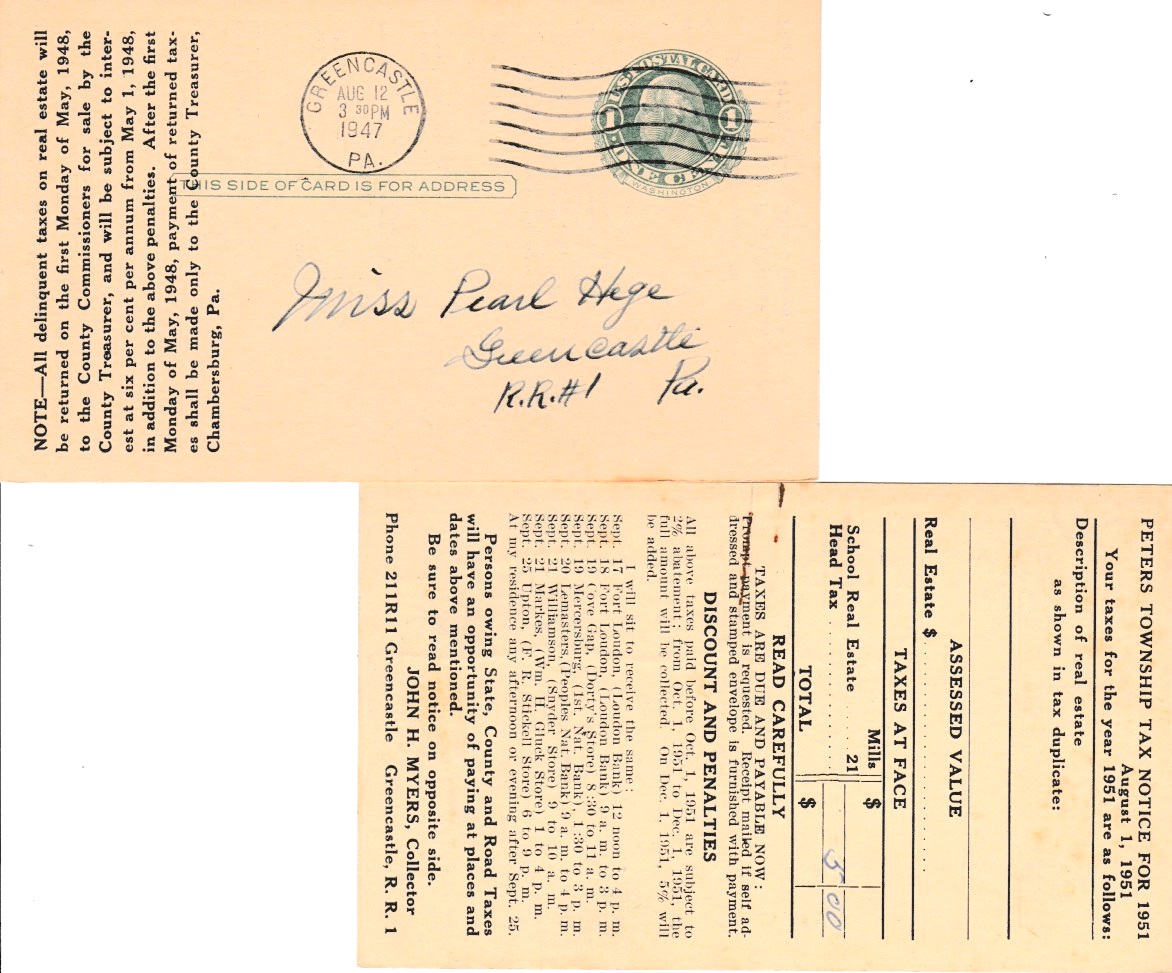 NOTE—All delinquent taxes on real estate will
be returned on the first Monday of May, 1948,
to the County Commissioners for sale by the
County Treasurer, and will be subject to inter-
est at six per cent per annum from May 1, 1948,
in addition to the above penalties. After the first
Monday of May, 1948, payment of returned tax-
es shall be made only to the County Treasurer,
Chambersburg, Pa.
GREENCASTLE
AUG 12
3 30 PM
1947
PA.
U.S. POSTAL CARD
1 1
ONE CENT
WASHINGTON
THIS SIDE OF CARD IS FOR ADDRESS
Miss Pearl Hege
Greencastle
R.R.#1 Pa.
PETERS TOWNSHIP TAX NOTICE FOR 1951
August 1, 1951
Your taxes for the year 1951 are as follows:
Description of real estate
as shown in tax duplicate:
ASSESSED VALUE
Real Estate $
TAXES AT FACE
Mills $
School Real Estate 21
Head Tax 5 00
TOTAL $
READ CAREFULLY
TAXES ARE DUE AND PAYABLE NOW:
Prompt payment is requested. Receipt mailed if self ad-
dressed and stamped envelope is furnished with payment.
DISCOUNT AND PENALTIES
All above taxes paid before Oct. 1, 1951 are subject to
2% abatement; from Oct. 1, 1951 to Dec. 1, 1951, the
full amount will be collected. On Dec. 1, 1951, 5% will
be added.
I will sit to receive the same:
Sept. 17 Fort Loudon, (Loudon Bank) 12 noon to 4 p. m.
Sept. 18 Fort Loudon, (Loudon Bank) 9 a. m. to 3 p. m.
Sept. 19 Cove Gap, (Dorty's Store) 8:30 to 11 a. m.
Sept. 19 Mercersburg, (1st. Nat. Bank), 1:30 to 3 p. m.
Sept. 20 Lemasters, (Peoples Nat. Bank) 9 a. m. to 4 p. m.
Sept. 21 Williamson, (Snyder Store) 9 to 10 a. m.
Sept. 21 Markes, (Wm. H. Gluck Store) 1 to 4 p. m.
Sept. 25 Upton, (F. R. Stickell Store) 6 to 9 p. m.
At my residence any afternoon or evening after Sept. 25.
Persons owing State, County and Road Taxes
will have an opportunity of paying at places and
dates above mentioned.
Be sure to read notice on opposite side.
JOHN H. MYERS, Collector
Phone 211R11 Greencastle Greencastle, R. R. 1